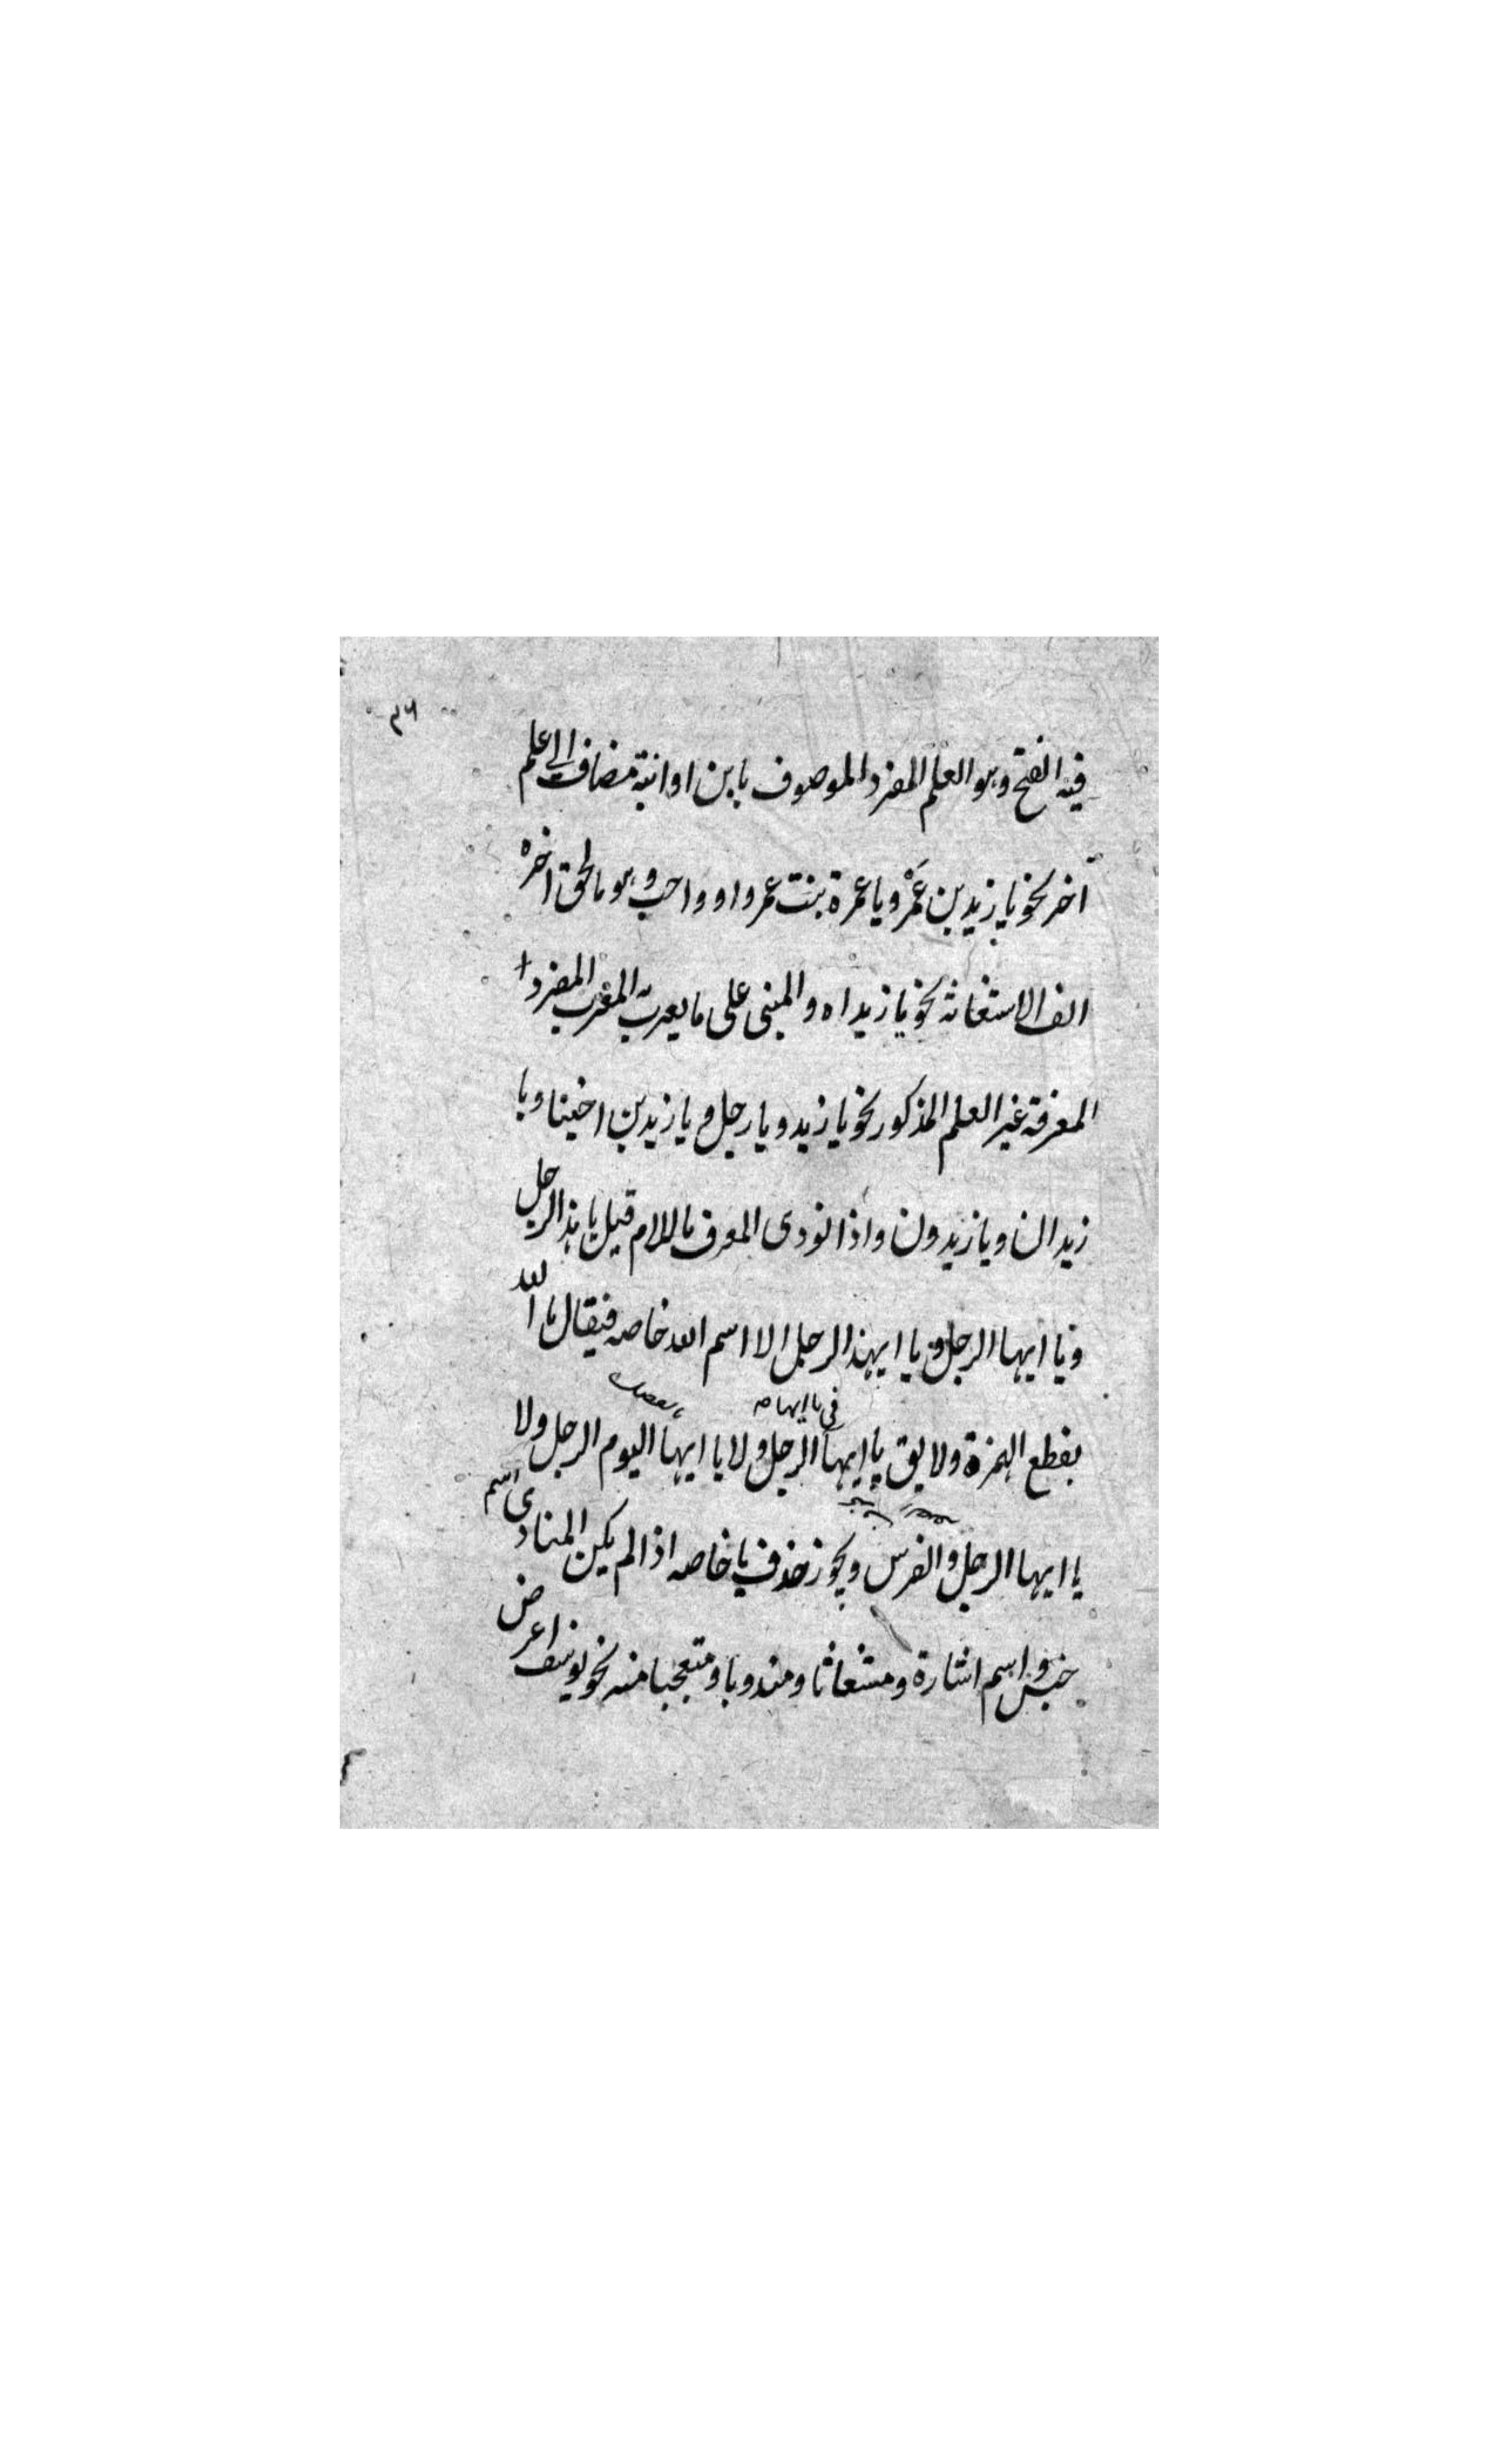 ٣٦
فيه الفتح وهو العلم المفرد الموصوف بابن او ابنة مضاف الى علم
آخر نحو يا زيد بن عَمْرو يا عمرة بنت عمرو او واجب وهو ما لحق اخره
الف الاستغاثة نحو يا زيداه والمبنى على ما يعرب به المعرب المفرد
المعرفة غير العلم المذكور نحو يا زيد ويا رجل ويا زيد بن اخينا ويا
زيدان ويا زيدون واذا نودى المعرف باللام قيل يا هذا الرجل
ويا ايها الرجل ويا ايهذا الرجل الا اسم الله خاصه فيقال يا الله
فى يا ايها
بقطع الهمزة ولا يق يا ايها الرجل ولا يا ايها اليوم الرجل ولا
يا ايها الرجل والفرس ويجوز حذف يا خاصه اذا لم يكن المنادى اسم
جنس واسم اشارة ومستغاثا ومندوبا ومتعجبا منه نحو يوسف اعرض